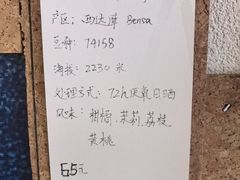 产区：西达摩 Bensa
豆种：74158
海拔：2230 米
处理方式：72h厌氧日晒
风味：柑橘、茉莉、荔枝
黄桃
65元